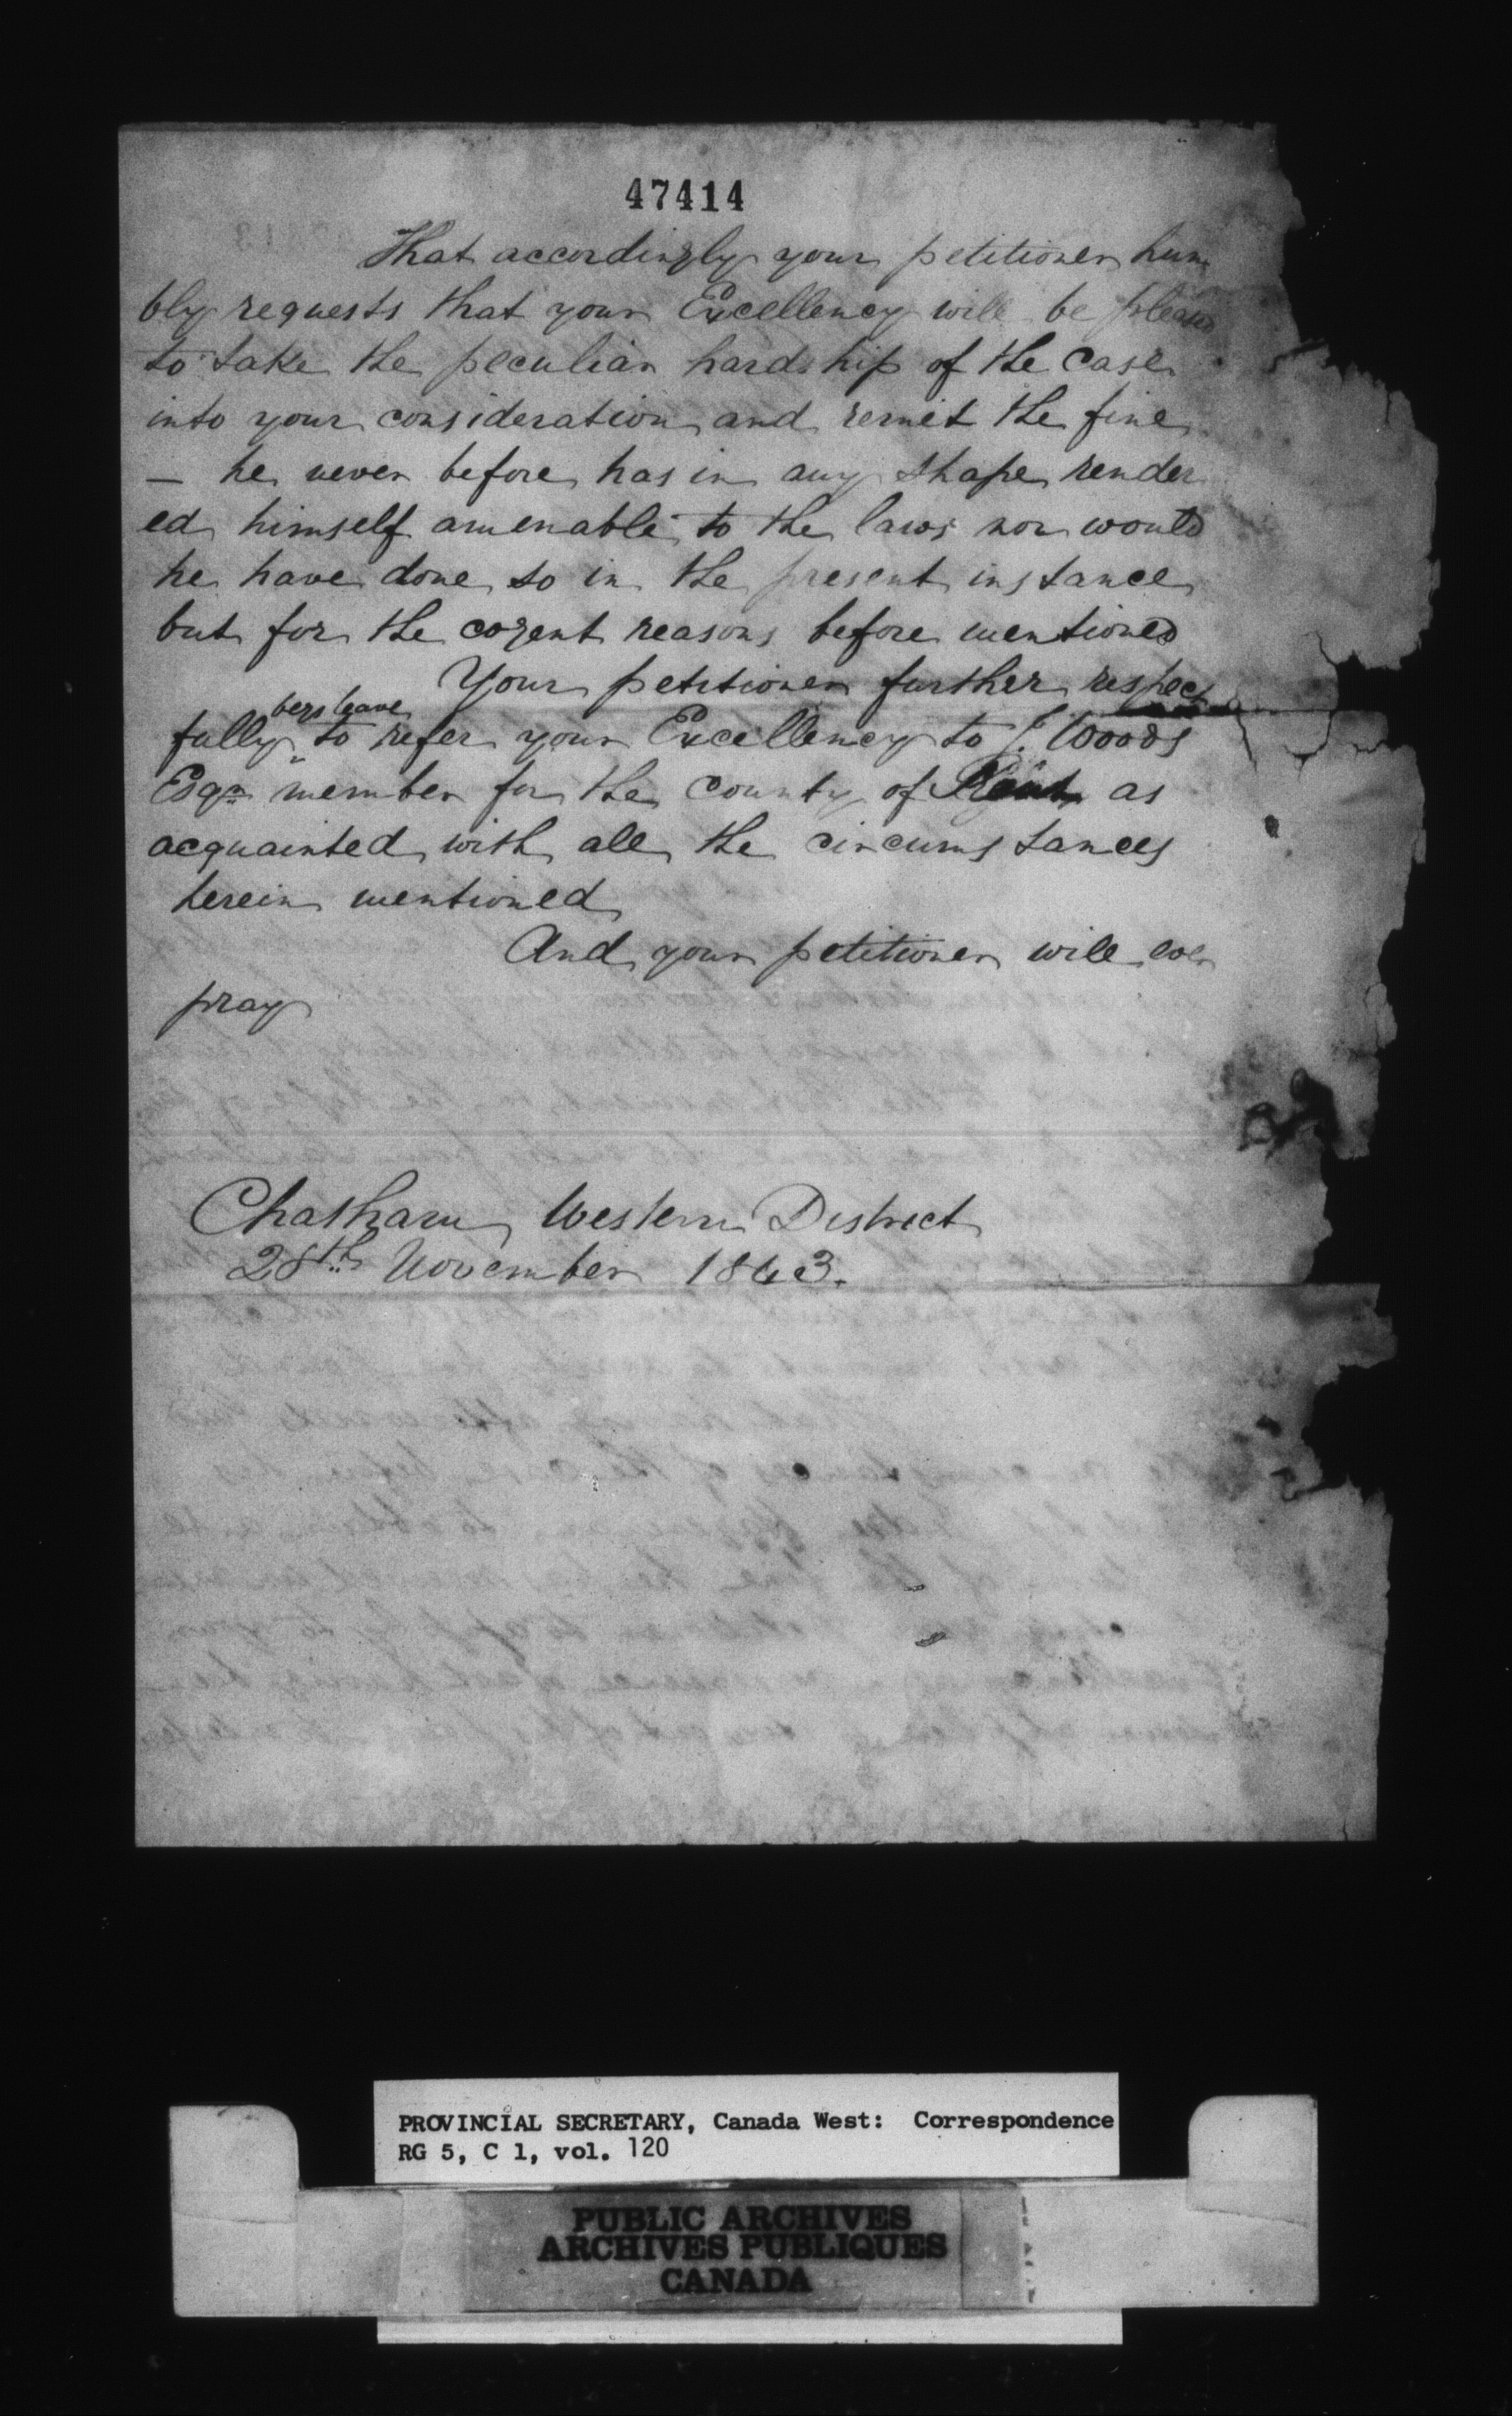 47414
That accordingly your petitioner hum
bly requests that your Excellency will be pleased
to take the peculiar hardship of the case
into your consideration and remit the fine
— he never before has in any shape render
ed himself amenable to the laws nor would
he have done so in the present instance
but for the cogent reasons before mentioned
Your petitioner further respect
begs leave
fully to refer your Excellency to J. Woods
Esqr member for the county of Kent as
acquainted with all the circumstances
herein mentioned
And your petitioner will ever
pray
Chatham Western District
28th November 1843.
PROVINCIAL SECRETARY, Canada West: Correspondence
RG 5, C 1, vol. 120
PUBLIC ARCHIVES
ARCHIVES PUBLIQUES
CANADA